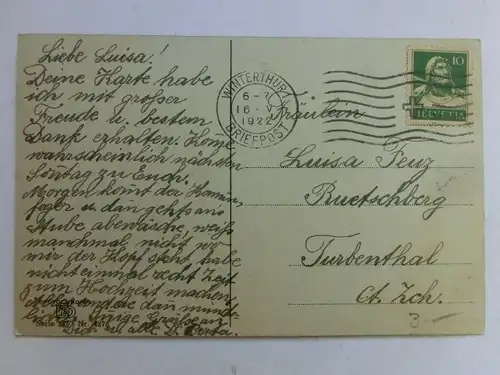 Liebe Luisa!
Deine Karte habe
ich mit großer
Freude u. bestem
Dank erhalten. Kome
wahrscheinlich nächsten
Sontag zu Euch.
Morgen kommt der Kamin-
feger u. dan gehts ans
Stube abewäsche, weiß
manchmal nicht wo
mir der Kopf steht habe
nicht einmal recht Zeit
zum Hochzeit machen
dan münd-
lich. Innige Grüße an
Dich u. alle
WINTERTHUR
6-7
16.V.
1922
BRIEFPOST
10
HELVETIA
Fräulein
Luisa Peuz
Ruetschberg
Turbenthal
Ct. Zch.
3.-
Serie Nr.